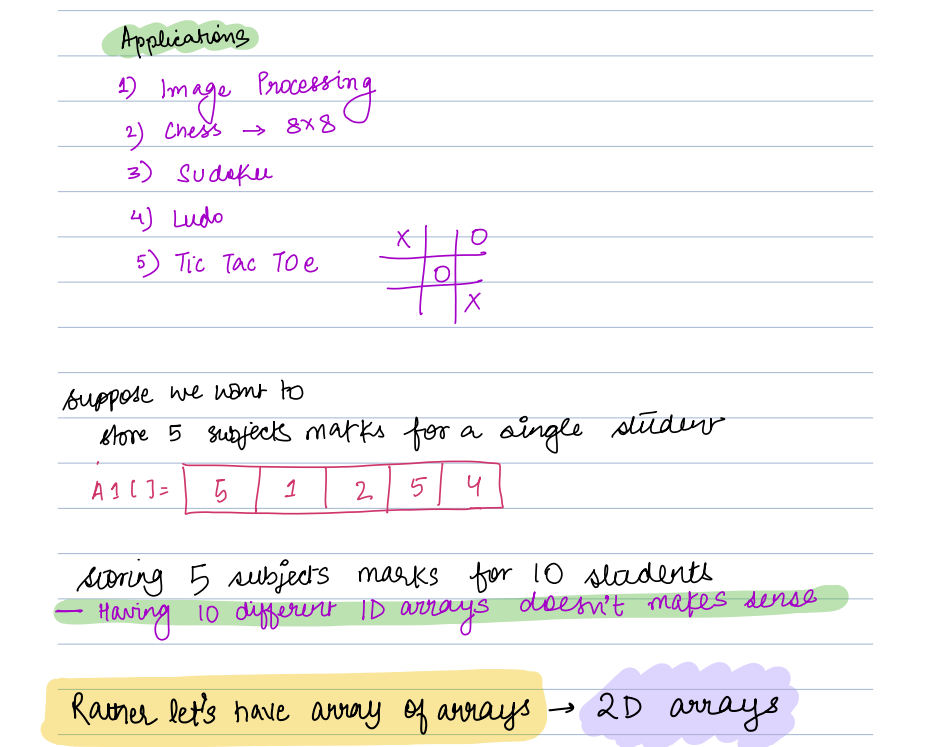 Applications
1) Image Processing
2) Chess → 8x8
3) Sudoku
4) Ludo
5) Tic Tac TOe
X O
O
X
suppose we want to
store 5 subjects marks for a single student
A1[]= 5 1 2 5 4
storing 5 subjects marks for 10 students
— Having 10 different 1D arrays doesn't makes sense
Rather let's have array of arrays → 2D arrays